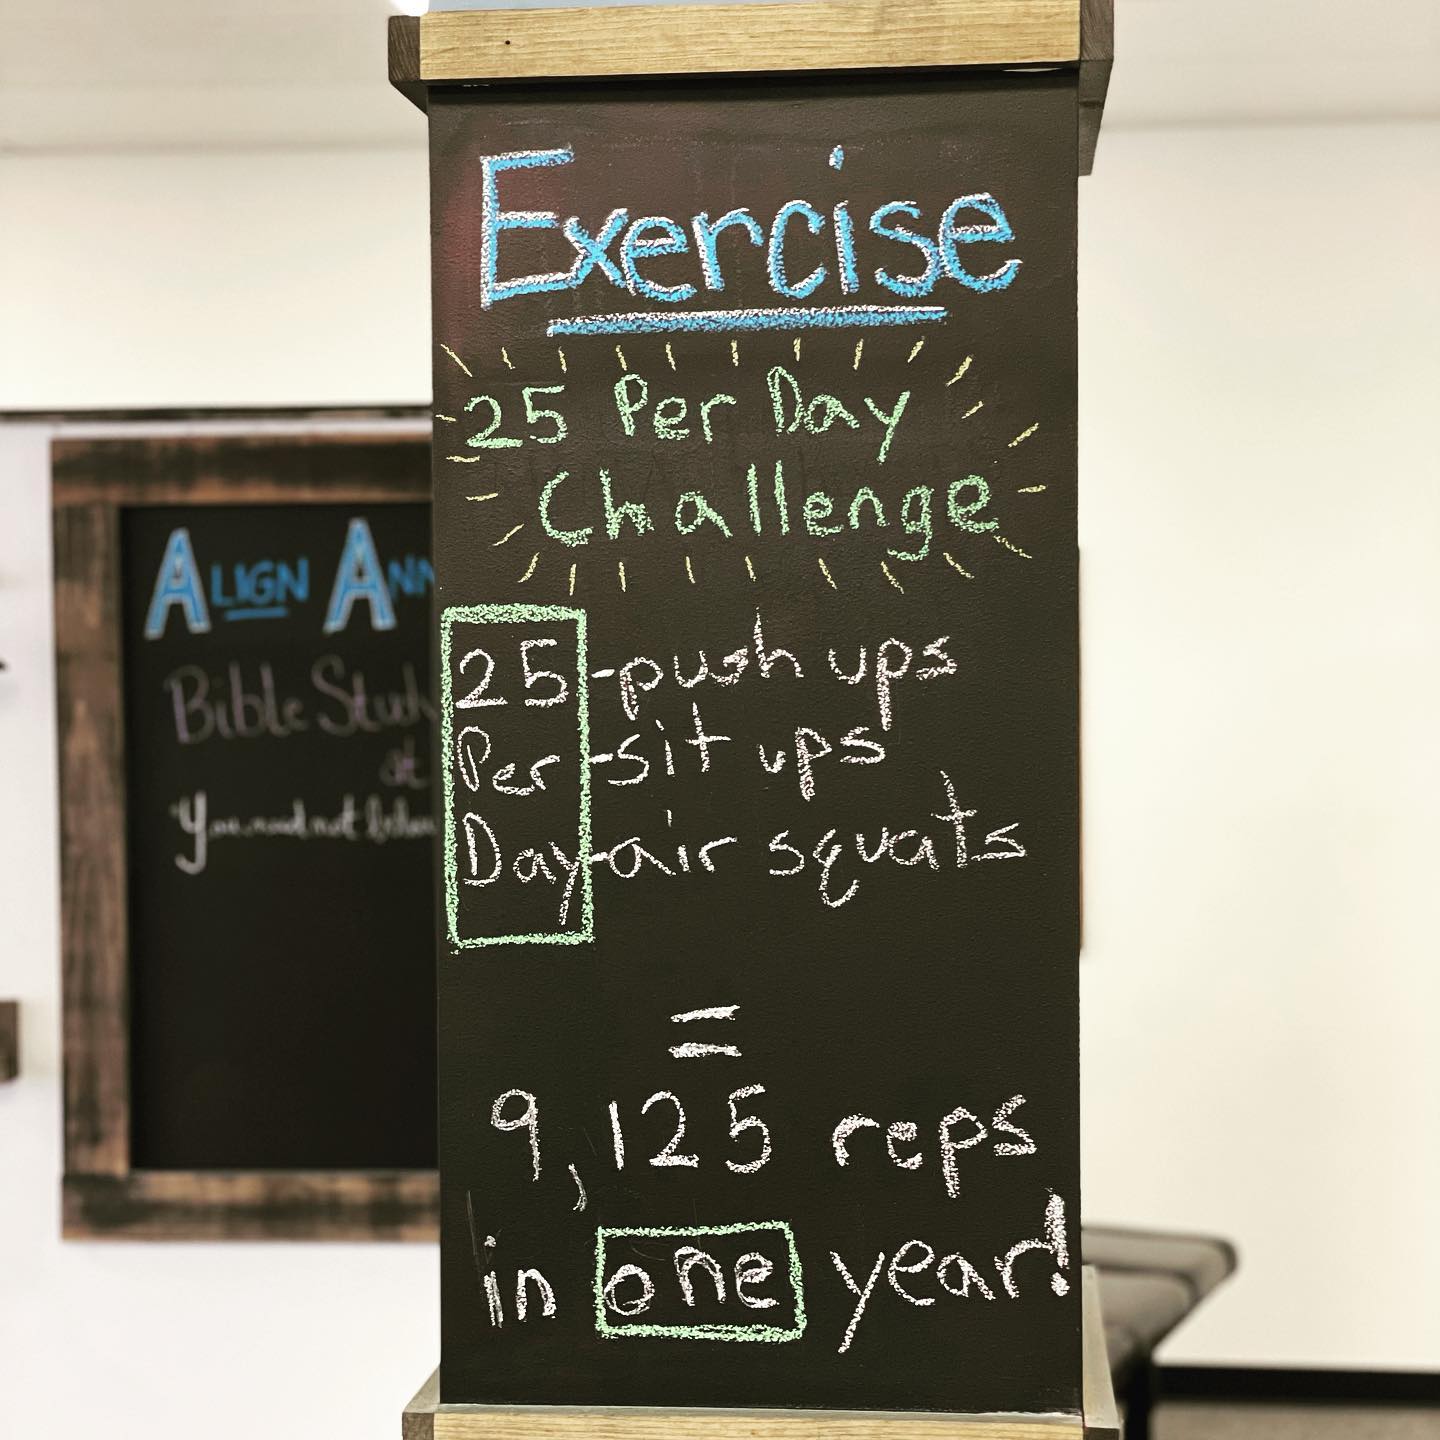 Exercise
25 Per Day
Challenge
25 -push ups
Per -sit ups
Day -air squats
=
9,125 reps
in one year!
ALIGN ANN
Bible Stud
at